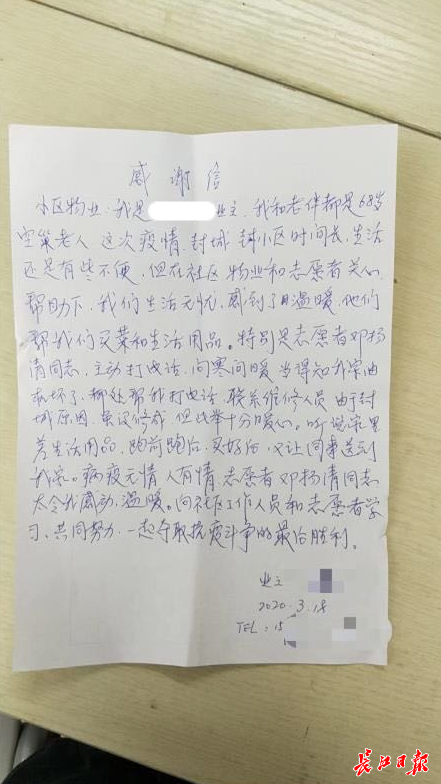 感谢信
小区物业：我是 业主，我和老伴都是68岁
空巢老人 这次疫情，封城 封小区时间长，生活
还是有些不便，但在社区 物业和志愿者关心
帮助下，我们生活无忧，感到了温暖，他们
帮我们买菜和生活用品。特别是志愿者邓扬
清同志，主动打电话，问寒问暖 当得知我家油
坏了，帮我打电话，联系维修人员 由于封
城原因，虽没修成 但此举十分暖心。听说家里
差生活用品，跑前跑后，买好后，又让同事送到
我家。病疫无情 人有情 志愿者邓扬清同志
太令我感动，温暖。向社区工作人员和志愿者学
习、共同努力，一起夺取抗疫斗争的最后胜利。
业主
2020.3.18
TEL：15
长江日报